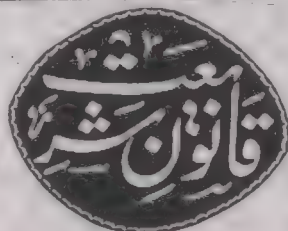 قانونِ شریعت